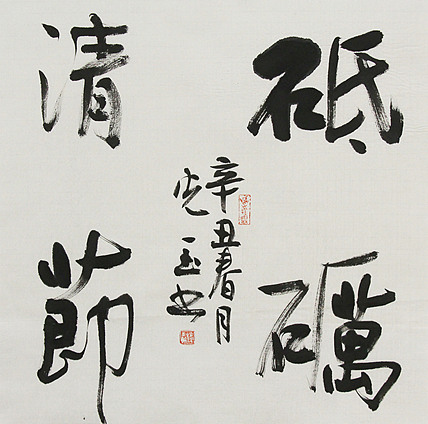 砥礪
清節
辛丑春月
光玉书